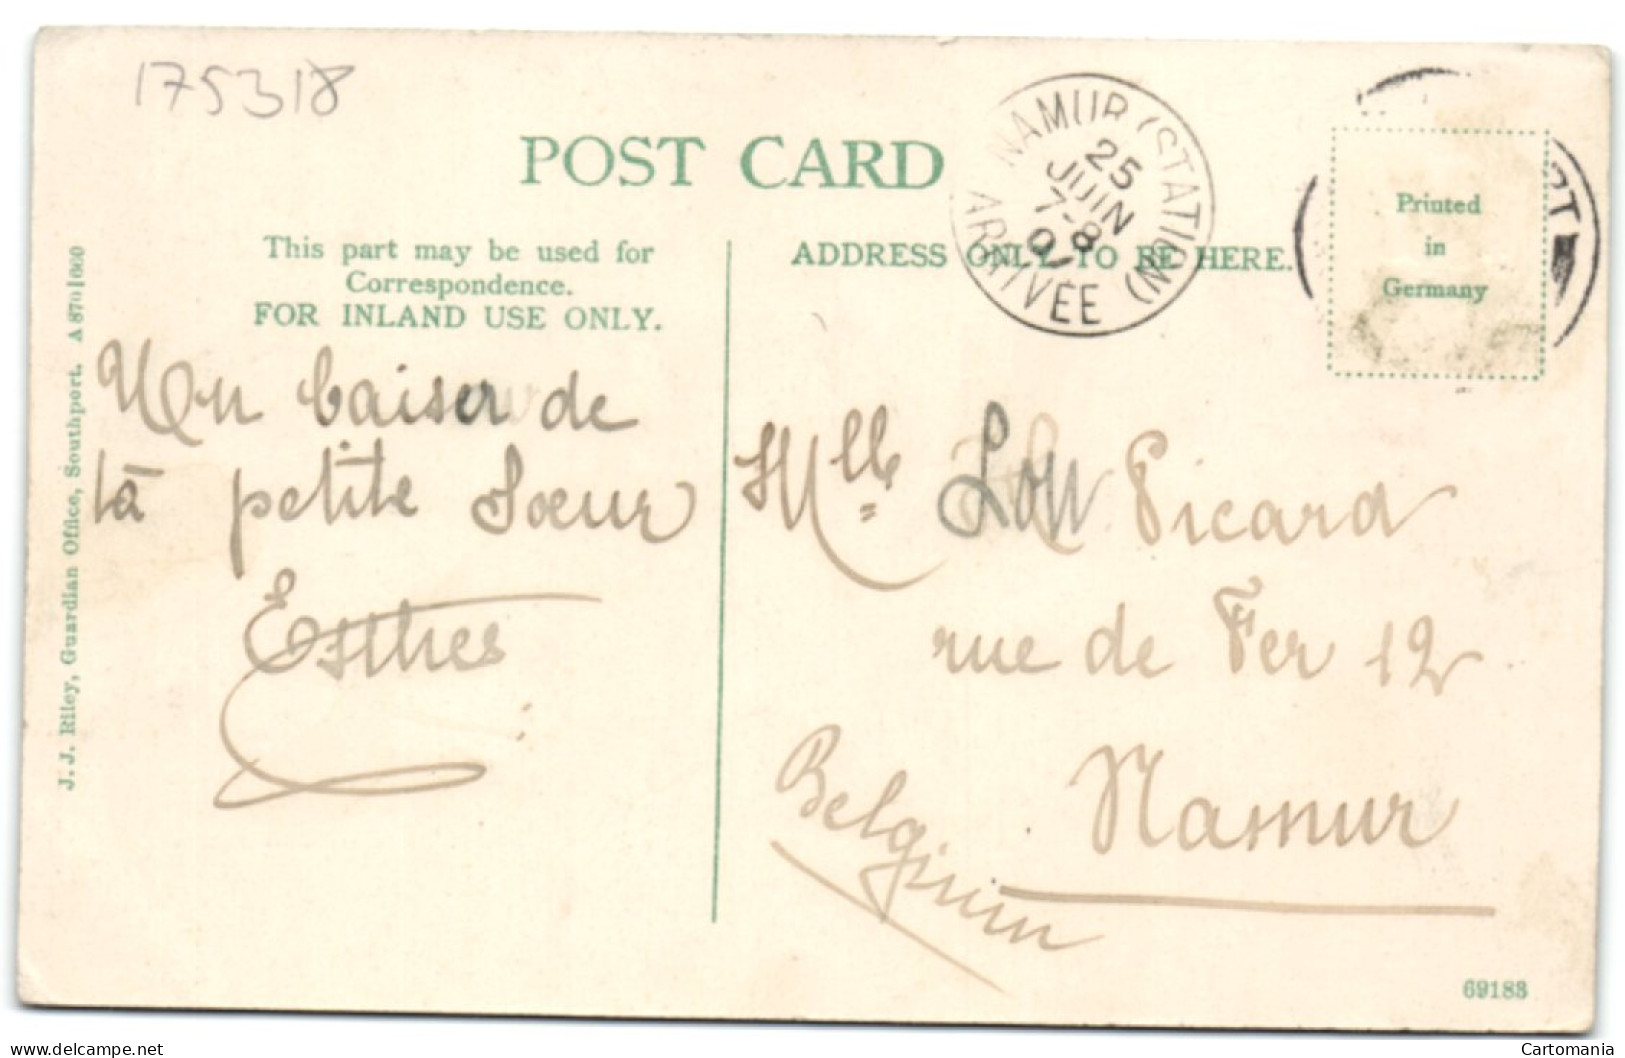 175318
POST CARD
This part may be used for
Correspondence.
FOR INLAND USE ONLY.
ADDRESS ONLY TO BE HERE.
NAMUR (STATION)
25
JUIN
7-8
ARRIVÉE (NOM)
Printed
in
Germany
J. J. Riley, Guardian Office, Southport. A 870|660
Un baiser de
ta petite Soeur
Esther
Mlle Picard
rue de Fer 12
Namur
Belgium
69183
www.delcampe.net
Cartomania